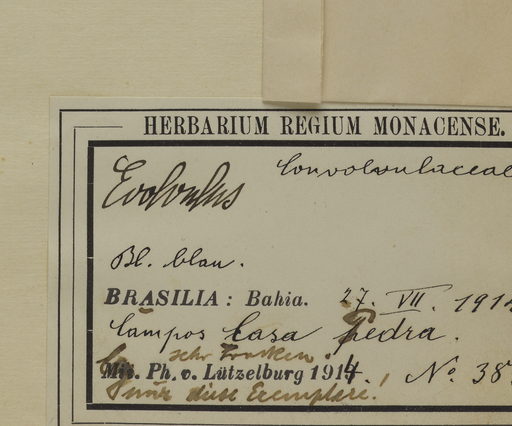 HERBARIUM REGIUM MONACENSE.
Convolvulaceae
Evolvulus
Bl. blau.
BRASILIA: Bahia. 27. VII. 191
Campos Casa Pedra.
sehr trocken.
Mis. Ph. v. Lützelburg 1914. No. 38
nur diese Exemplare!